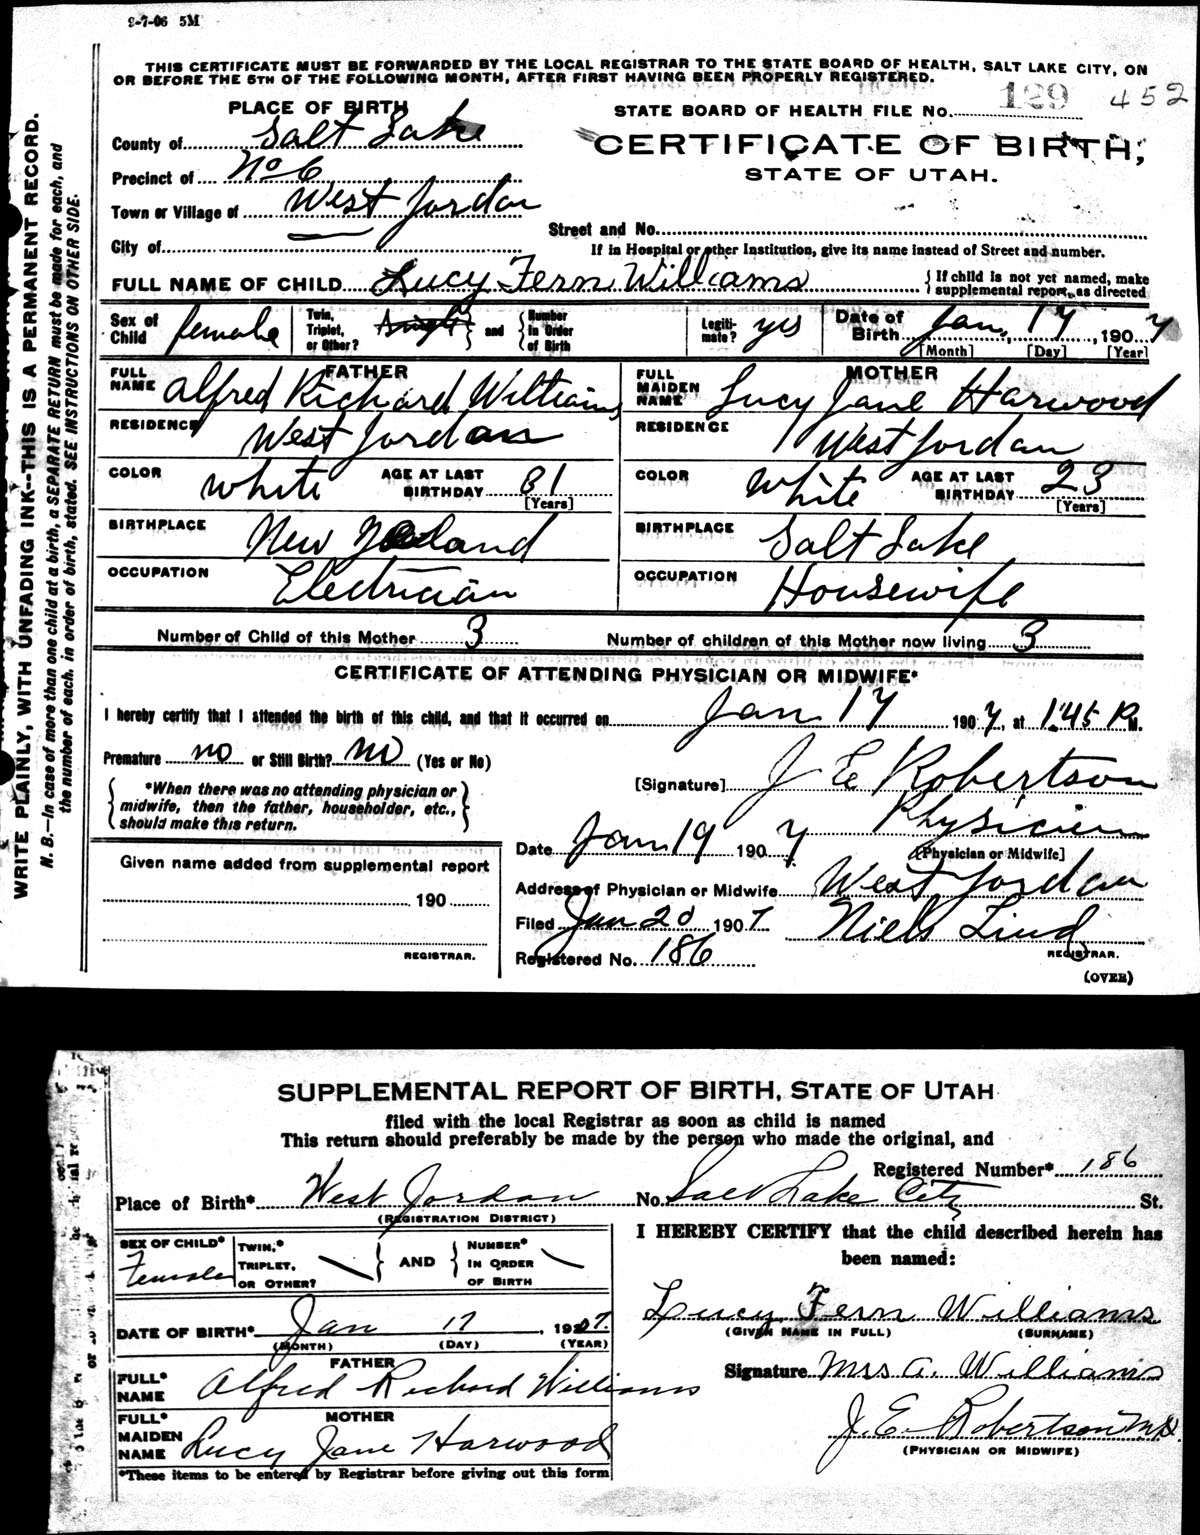 9-7-06 5M
THIS CERTIFICATE MUST BE FORWARDED BY THE LOCAL REGISTRAR TO THE STATE BOARD OF HEALTH, SALT LAKE CITY, ON
OR BEFORE THE 5TH OF THE FOLLOWING MONTH, AFTER FIRST HAVING BEEN PROPERLY REGISTERED.
WRITE PLAINLY, WITH UNFADING INK--THIS IS A PERMANENT RECORD.
N. B.—In case of more than one child at a birth, a SEPARATE RETURN must be made for each, and
the number of each, in order of birth, stated. SEE INSTRUCTIONS ON OTHER SIDE.
PLACE OF BIRTH
County of Salt Lake
Precinct of No 6
Town or Village of West Jordan
City of
STATE BOARD OF HEALTH FILE No. 129 452
CERTIFICATE OF BIRTH,
STATE OF UTAH.
Street and No.
If in Hospital or other Institution, give its name instead of Street and number.
FULL NAME OF CHILD Lucy Fern Williams {If child is not yet named, make
supplemental report, as directed
Sex of Child female Twin, Triplet, or Other? Single } and { Number In Order of Birth Legitimate? yes Date of Birth Jan, 17, 1907
[Month] [Day] [Year]
FATHER
FULL NAME Alfred Richard Williams
RESIDENCE West Jordan
COLOR white AGE AT LAST BIRTHDAY 31
[Years]
BIRTHPLACE New Zealand
OCCUPATION Electrician
MOTHER
FULL MAIDEN NAME Lucy Jane Harwood
RESIDENCE West Jordan
COLOR White AGE AT LAST BIRTHDAY 23
[Years]
BIRTHPLACE Salt Lake
OCCUPATION Housewife
Number of Child of this Mother 3 Number of children of this Mother now living 3
CERTIFICATE OF ATTENDING PHYSICIAN OR MIDWIFE*
I hereby certify that I attended the birth of this child, and that it occurred on Jan 17 1907, at 1:45 P M.
Premature no or Still Birth? no (Yes or No)
*When there was no attending physician or
midwife, then the father, householder, etc.,
should make this return.
[Signature] J E Robertson
Physician
[Physician or Midwife]
Date Jan 19 1907
Address of Physician or Midwife West Jordan
Filed Jan 20 1907 Niels Lind
REGISTRAR.
Registered No. 186
(OVER)
Given name added from supplemental report
190
REGISTRAR.
SUPPLEMENTAL REPORT OF BIRTH, STATE OF UTAH
filed with the local Registrar as soon as child is named
This return should preferably be made by the person who made the original, and
Registered Number* 186
Place of Birth* West Jordan No. Salt Lake City St.
(REGISTRATION DISTRICT)
SEX OF CHILD* Female TWIN,* TRIPLET, OR OTHER? } AND { NUMBER* IN ORDER OF BIRTH
DATE OF BIRTH* Jan 17, 1907.
(MONTH) (DAY) (YEAR)
FATHER
FULL* NAME Alfred Richard Williams
MOTHER
FULL* MAIDEN NAME Lucy Jane Harwood
*These items to be entered by Registrar before giving out this form
I HEREBY CERTIFY that the child described herein has
been named:
Lucy Fern Williams
(GIVEN NAME IN FULL) (SURNAME)
Signature Mrs A. Williams
J. E. Robertson M.D.
(PHYSICIAN OR MIDWIFE)